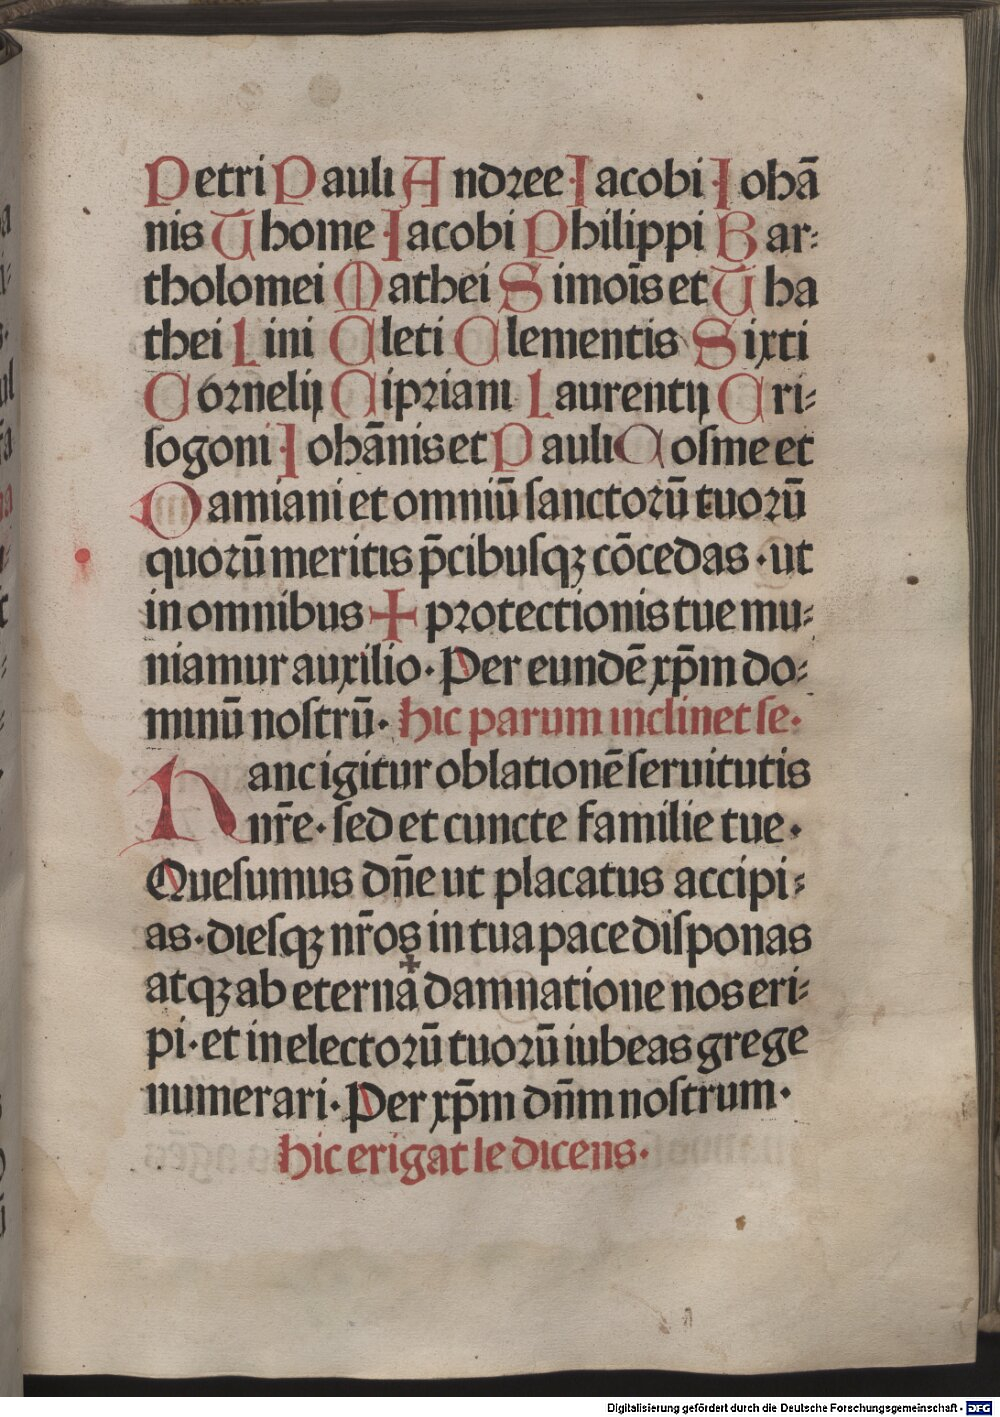 Petri Pauli Andree Iacobi Iohā
nis Thome Iacobi Philippi Bar⸗
tholomei Mathei Simoīs et Tha
thei Lini Cleti Clementis Sixti
Cornelij Cipriani Laurentij Cri⸗
sogoni Iohānis et Pauli Cosme et
Damiani et omniū sanctorū tuorū
quorū meritis p̄cibusqꝫ cōcedas · ut
in omnibus + protectionis tue mu⸗
niamur auxilio · Per eundē xp̄m do⸗
minū nostrū · hic parum inclinet se ·
Hanc igitur oblationē seruitutis
nr̄e · sed et cuncte familie tue ·
Quesumus dn̄e ut placatus accipi⸗
as · diesqꝫ nr̄os in tua pace disponas
atqꝫ ab eterna + damnatione nos eri⸗
pi · et in electorū tuorū iubeas grege
numerari · Per xp̄m dn̄m nostrum ·
hic erigat se dicens ·
Digitalisierung gefördert durch die Deutsche Forschungsgemeinschaft - DFG